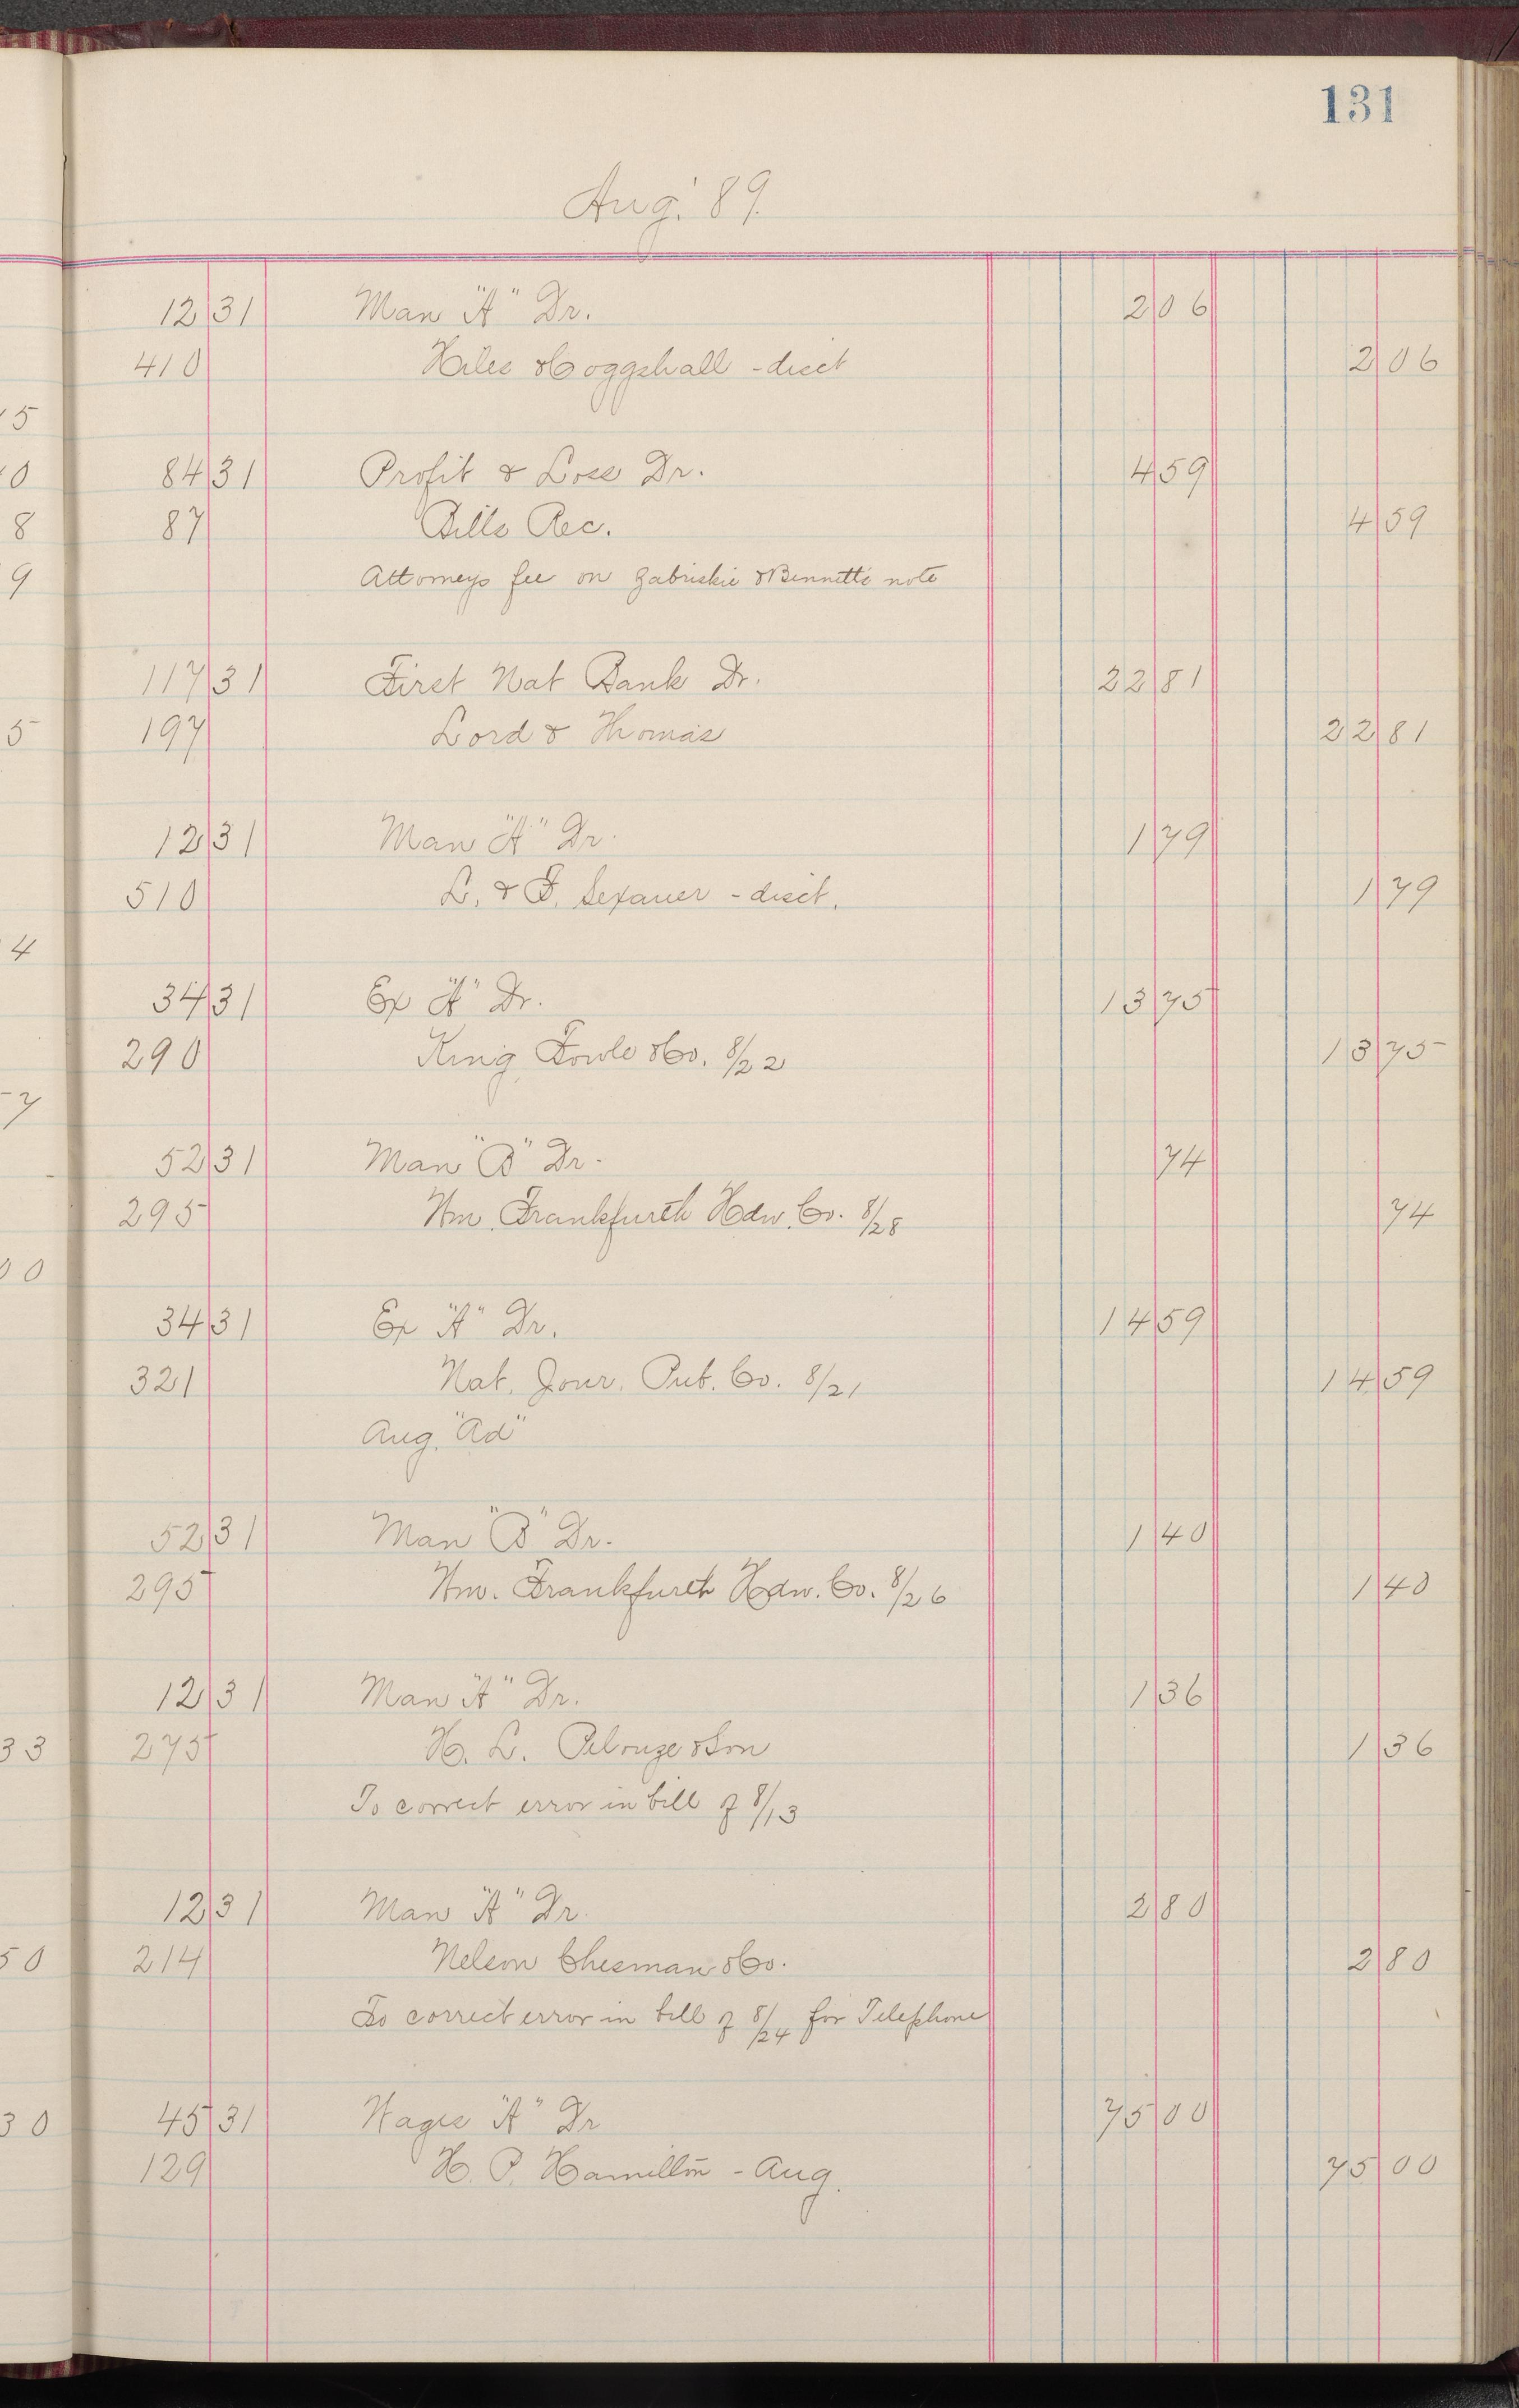 131
Aug. '89.
12 31 Man "A" Dr. 2 06
410 Hiles & Coggshall - disct 2 06
84 31 Profit & Loss Dr. 4 59
87 Bills Rec. 4 59
Attorneys fee on Zabriskie & Bennetts note
117 31 First Nat Bank Dr. 22 81
197 Lord & Thomas 22 81
12 31 Man "A" Dr. 1 79
510 L. & F. Sexauer - disct. 1 79
34 31 Ex "A" Dr. 13 75
290 King Fowle & Co. 8/22 13 75
52 31 Man "B" Dr. 74
295 Wm. Frankfurth Hdw. Co. 8/28 74
34 31 Ex "A" Dr. 14 59
321 Nat. Jour. Pub. Co. 8/21 14 59
Aug. "Ad"
52 31 Man "B" Dr. 1 40
295 Wm. Frankfurth Hdw. Co. 8/26 1 40
12 31 Man "A" Dr. 1 36
275 H. L. Pelouze & Son 1 36
To correct error in bill of 8/13
12 31 Man "A" Dr. 2 80
214 Nelson Chesman & Co. 2 80
To correct error in bill of 8/24 for Telephone
45 31 Wages "A" Dr 75 00
129 H. P. Hamilton - Aug. 75 00